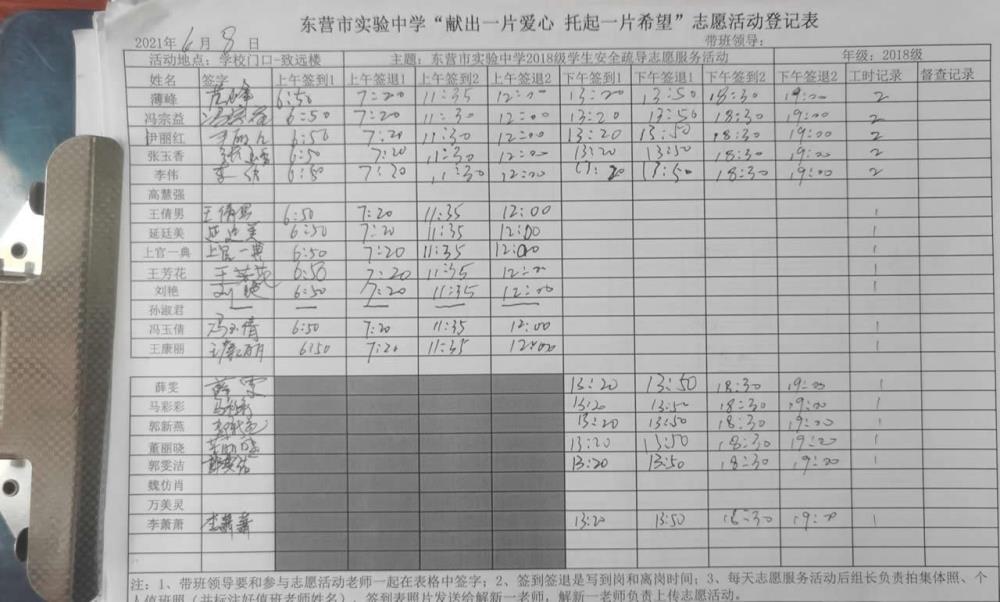 东营市实验中学“献出一片爱心 托起一片希望”志愿活动登记表
2021年 6 月 8 日 带班领导：
活动地点：学校门口-致远楼 主题：东营市实验中学2018级学生安全疏导志愿服务活动 年级：2018级
姓名 签字 上午签到1 上午签退1 上午签到2 上午签退2 下午签到1 下午签退1 下午签到2 下午签退2 工时记录 督查记录
薄峰 6:50 7:20 11:35 12:00 13:20 13:50 18:30 19:00 2
冯宗益 冯宗益 6:50 7:20 11:30 12:00 13:20 13:50 18:30 19:00 2
伊丽红 6:50 7:20 11:30 12:00 13:20 13:50 18:30 19:00 2
张玉香 6:50 7:20 11:30 12:00 13:20 13:50 18:30 19:00 2
李伟 李伟 6:50 7:20 11:30 12:00 13:20 13:50 18:30 19:00 2
高慧强
王倩男 王倩男 6:50 7:20 11:35 12:00 1
延廷美 延廷美 6:50 7:20 11:35 12:00 1
上官一典 上官一典 6:50 7:20 11:35 12:00 1
王芳花 王芳花 6:50 7:20 11:35 12:00 1
刘艳 刘艳 6:50 7:20 11:35 12:00 1
孙淑君
冯玉倩 冯玉倩 6:50 7:20 11:35 12:00 1
王康丽 王康丽 6:50 7:20 11:35 12:00 1
薛雯 薛雯 13:20 13:50 18:30 19:00 1
马彩彩 13:20 13:50 18:30 19:00 1
郭新燕 13:20 13:50 18:30 19:00 1
董丽晓 董丽晓 13:20 13:50 18:30 19:20 1
郭雯洁 郭雯洁 13:20 13:50 18:30 19:20 1
魏仿肖
万美灵
李萧萧 李萧萧 13:20 13:50 18:30 19:00 1
注：1、带班领导要和参与志愿活动老师一起在表格中签字；2、签到签退是写到岗和离岗时间；3、每天志愿服务活动后组长负责拍集体照、个
人值班照（并标注好值班老师姓名），签到表照片发送给解新一老师，解新一老师负责上传志愿活动。